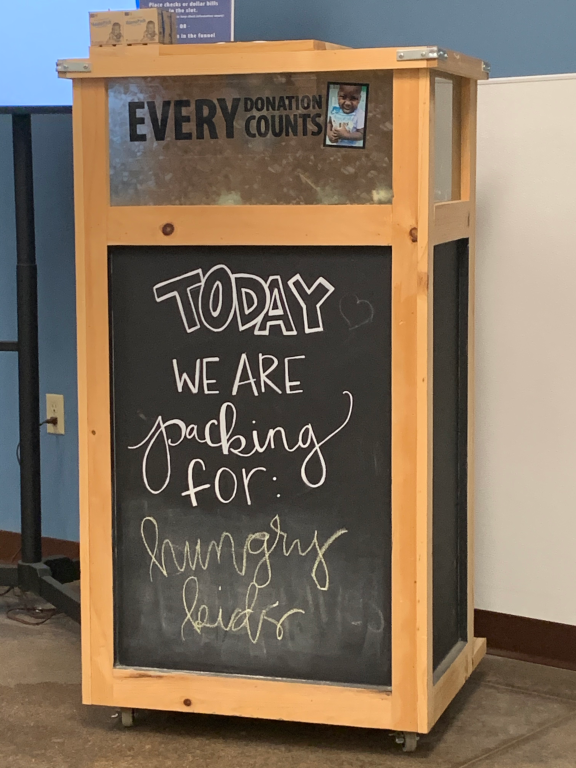 Place checks or dollar bills
in the slot.
OR
in the funnel
EVERY DONATION
COUNTS
TODAY
WE ARE
packing
for:
hungry
kids